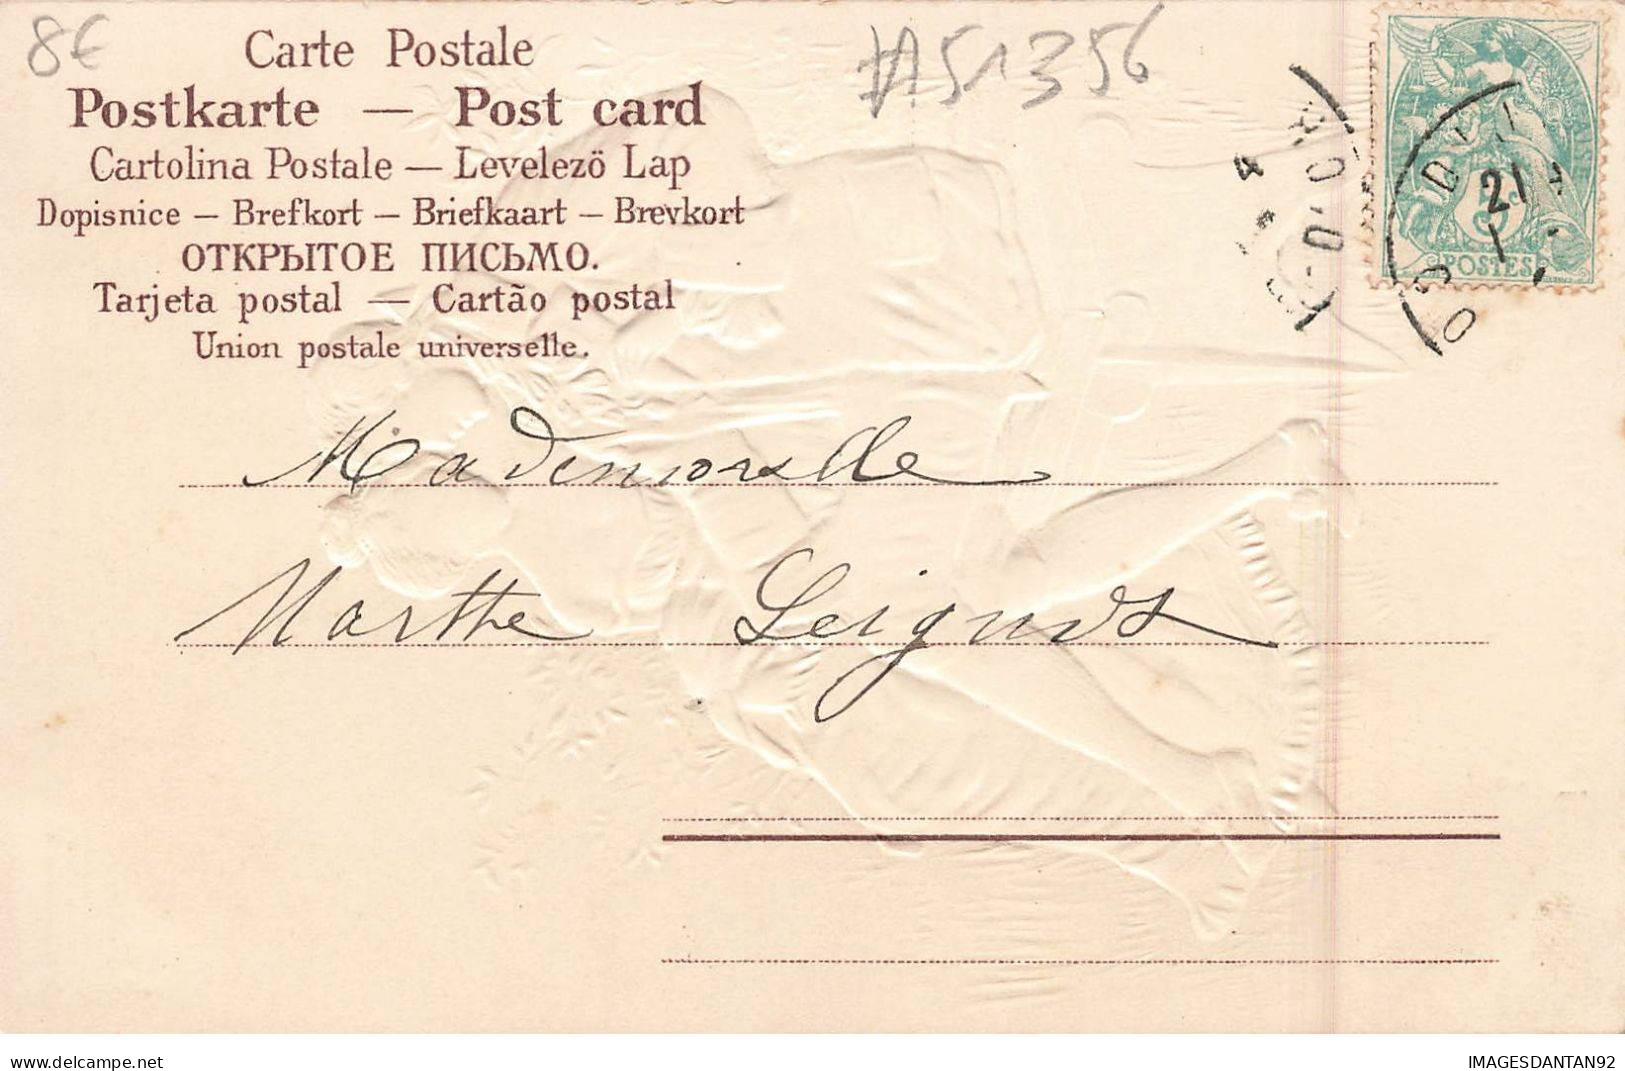 8€
#A51356
Carte Postale
Postkarte — Post card
Cartolina Postale — Levelezö Lap
Dopisnice — Brefkort — Briefkaart — Brevkort
ОТКРЫТОЕ ПИСЬМО.
Tarjeta postal — Cartão postal
Union postale universelle.
POSTES
21
Mademoiselle
Marthe
delcampe.net
IMAGESDANTAN92